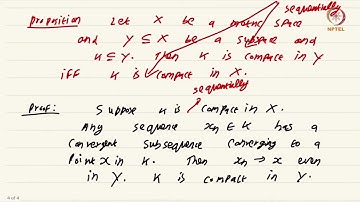 sequentially
NPTEL
Proposition Let X be a metric space
and Y ⊆ X be a subspace and
K ⊆ Y. Then K is compact in Y
iff K is compact in X.
sequentially
Proof: Suppose K is compact in X.
Any sequence xn ∈ K has a
Convergent subsequence converging to a
Point x in K. Then xn → x even
in Y. K is compact in Y.
4 of 4